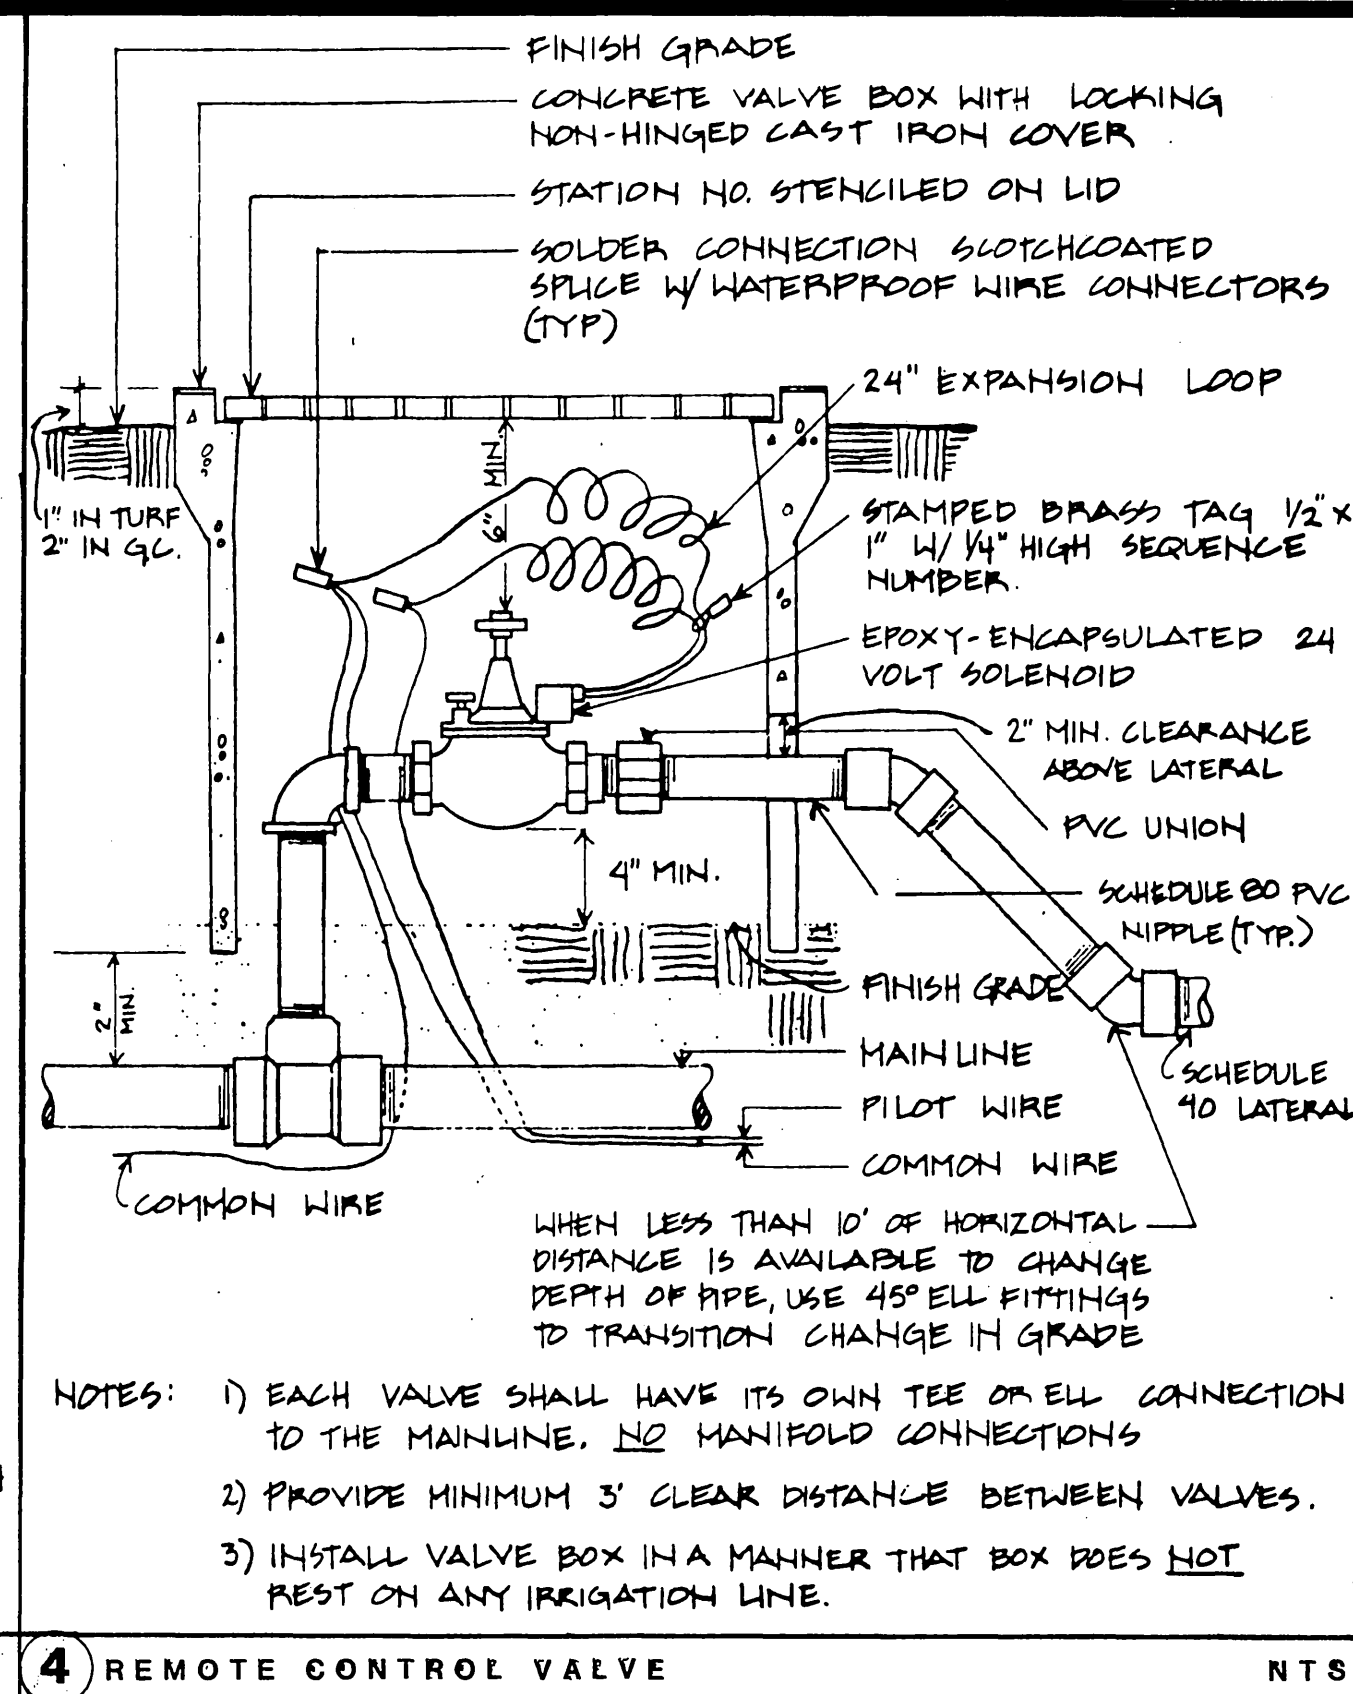 FINISH GRADE
CONCRETE VALVE BOX WITH LOCKING
NON-HINGED CAST IRON COVER
STATION NO. STENCILED ON LID
SOLDER CONNECTION SCOTCHCOATED
SPLICE W/ WATERPROOF WIRE CONNECTORS
(TYP)
24" EXPANSION LOOP
6" MIN.
1" IN TURF
2" IN G.C.
STAMPED BRASS TAG 1/2" X
1" W/ 1/4" HIGH SEQUENCE
NUMBER.
EPOXY-ENCAPSULATED 24
VOLT SOLENOID
2" MIN. CLEARANCE
ABOVE LATERAL
PVC UNION
4" MIN.
SCHEDULE 80 PVC
NIPPLE (TYP.)
2"
MIN
FINISH GRADE
MAINLINE
SCHEDULE
40 LATERAL
PILOT WIRE
COMMON WIRE
COMMON WIRE
WHEN LESS THAN 10' OF HORIZONTAL
DISTANCE IS AVAILABLE TO CHANGE
DEPTH OF PIPE, USE 45° ELL FITTINGS
TO TRANSITION CHANGE IN GRADE
NOTES: 1) EACH VALVE SHALL HAVE ITS OWN TEE OR ELL CONNECTION
TO THE MAINLINE. NO MANIFOLD CONNECTIONS
2) PROVIDE MINIMUM 3' CLEAR DISTANCE BETWEEN VALVES.
3) INSTALL VALVE BOX IN A MANNER THAT BOX DOES NOT
REST ON ANY IRRIGATION LINE.
4 REMOTE CONTROL VALVE NTS